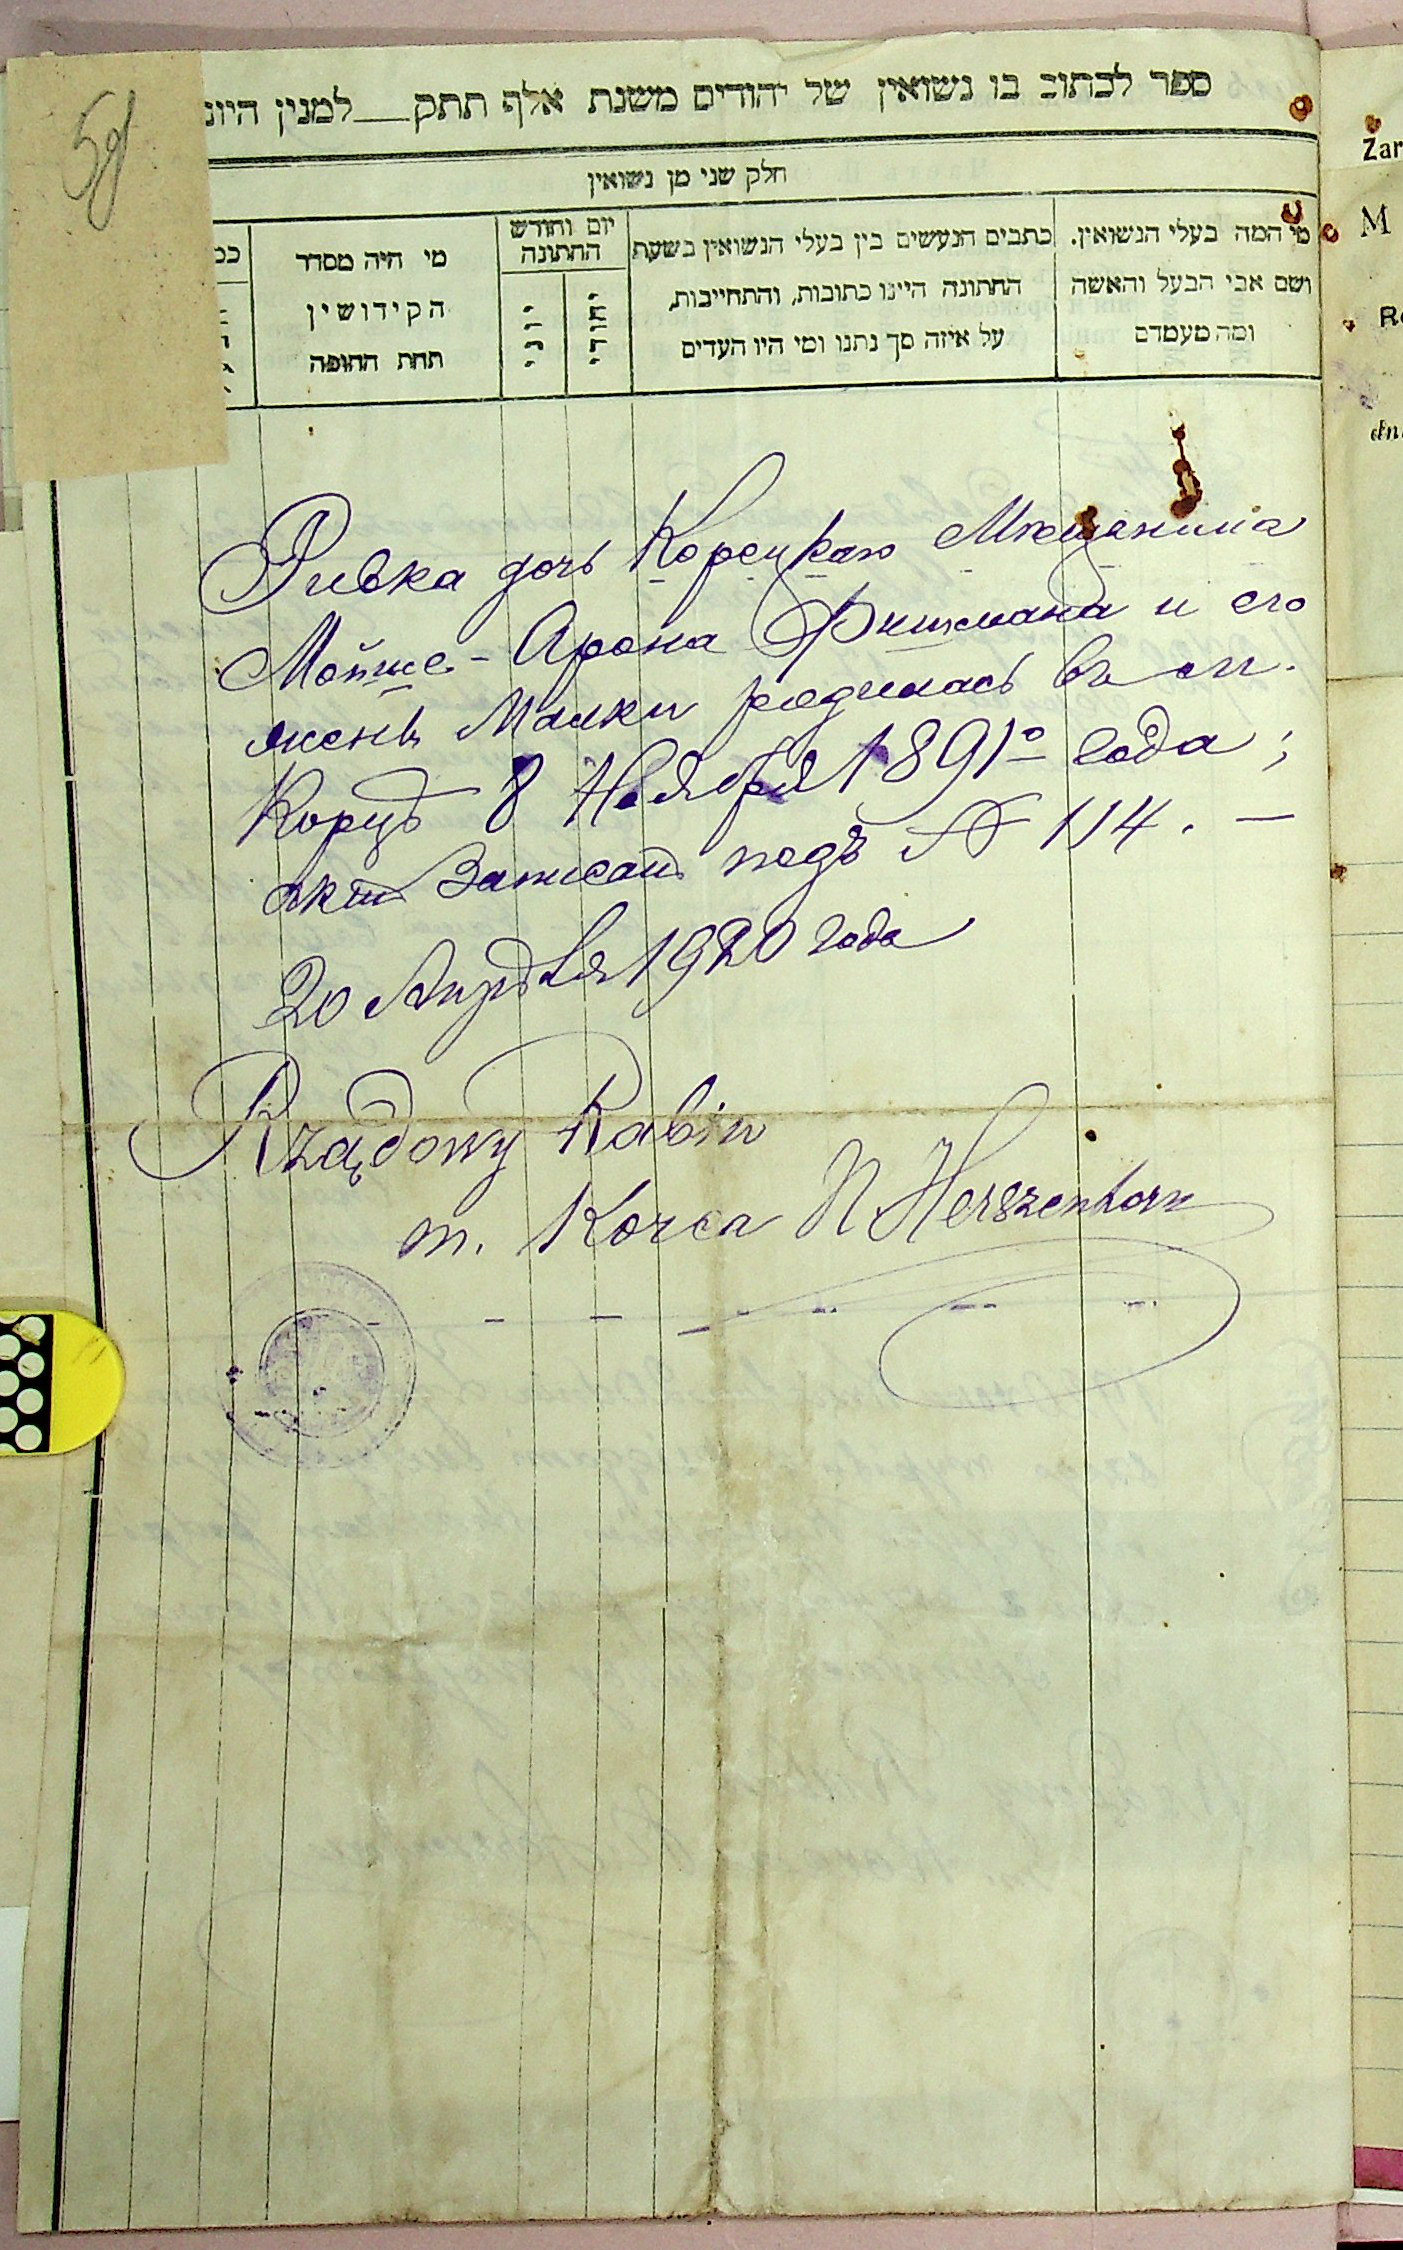 59
ספר לכתוב בו נשואין של יהודים משנת אלף תתק__למנין היונ
חלק שני מן נשואין
מי המה בעלי הנשואין.
ושם אבי הבעל והאשה
ומה מעמדם
כתבים הנעשים בין בעלי הנשואין בשעת
החתונה היינו כתובות, והתחייבות,
על איזה סך נתנו ומי היו העדים
יום וחודש
החתונה
יהודי
יוני
מי היה מסדר
הקידושין
תחת החופה
Ривка дочь Корецкаго Мѣщанина
Мойше-Арона Фишмана и его
жены Малки родилась въ м.
Корцѣ 8 Ноября 1891го года;
актъ записанъ подъ № 114. —
20 Апрѣля 1920 года
Rządowy Rabin
m. Korca N Herszenhorn
Zar
M
Re
dn